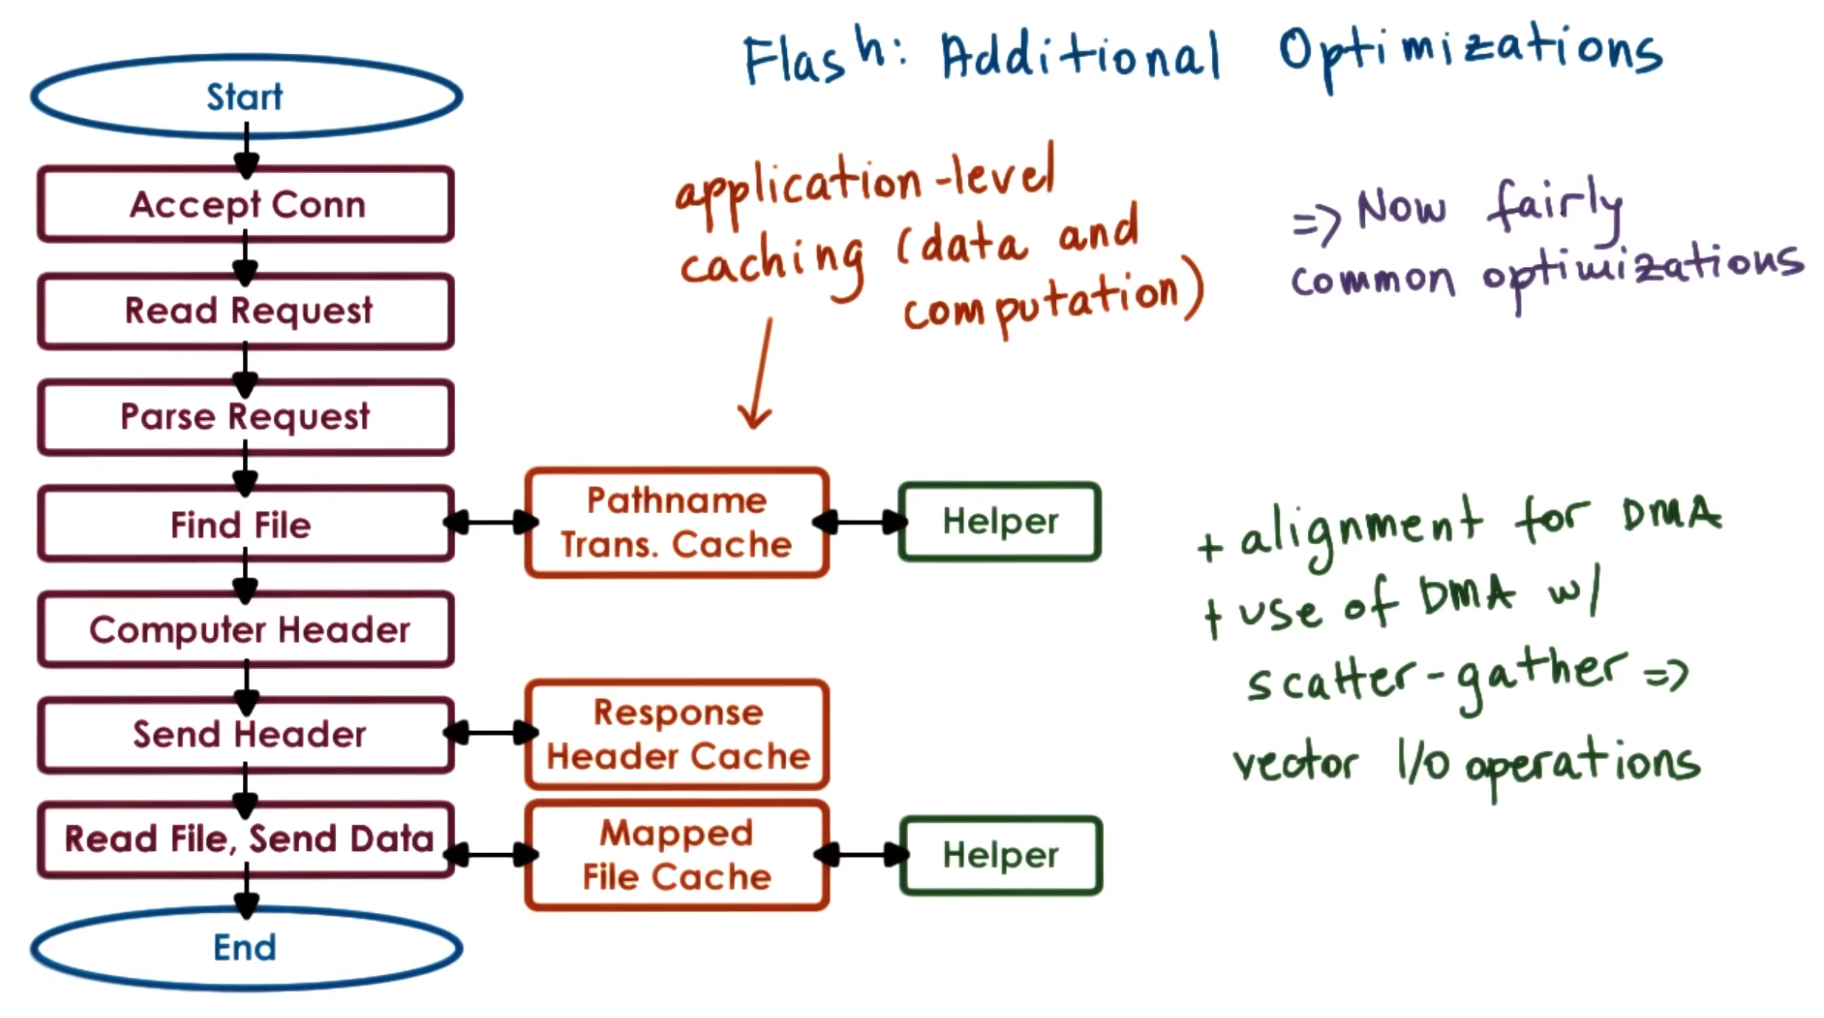 Flash: Additional Optimizations
Start
Accept Conn
Read Request
Parse Request
Find File
Computer Header
Send Header
Read File, Send Data
End
application-level
caching (data and
computation)
Pathname
Trans. Cache
Helper
Response
Header Cache
Mapped
File Cache
Helper
=> Now fairly
common optimizations
+ alignment for DMA
+ use of DMA w/
scatter-gather =>
vector I/O operations